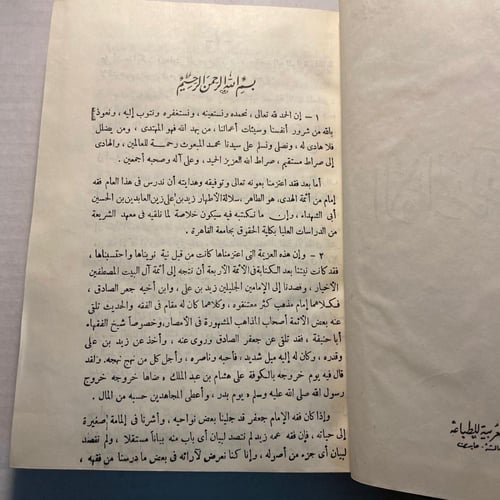 بسم الله الرحمن الرحيم
١ — إن الحمد لله تعالى، نحمده ونستعينه، ونستغفره ونتوب إليه، ونعوذ
بالله من شرور أنفسنا وسيئات أعمالنا، من يهد الله فهو المهتدى، ومن يضلل
فلا هادى له، ونصلى ونسلم على سيدنا محمد المبعوث رحمة للعالمين، والهادى
إلى صراط مستقيم، صراط الله العزيز الحميد، وعلى آله وصحبه أجمعين.
أما بعد فقد اعتزمنا بعونه تعالى وتوفيقه وهدايته أن ندرس فى هذا العام فقه
إمام من أئمة الهدى، هو الطاهر، سلالة الأطهار زيد بن على زين العابدين بن الحسين
أبى الشهداء، وإن ما نكتبه فيه سيكون خلاصة لما نلقيه فى معهد الشريعة
من الدراسات العليا بكلية الحقوق بجامعة القاهرة.
٢ — وإن هذه العزيمة التى اعتزمناها كانت من قبل نية نويناها واحتسبناها،
فقد كانت نيتنا بعد الكتابة فى الأئمة الأربعة أن نتجه إلى أئمة آل البيت المصطفين
الأخيار، وقصدنا إلى الإمامين الجليلين زيد بن على، وابن أخيه جعفر الصادق،
فكلاهما إمام مذهب كثر معتنقوه، وكلاهما كان له مقام فى الفقه والحديث تلقى
عنه بعض الأئمة أصحاب المذاهب المشهورة فى الأمصار، وخصوصاً شيخ الفقهاء
أبا حنيفة، فقد تلقى عن جعفر الصادق وروى عنه، وأخذ عن زيد بن على
وقدره، وكان له إليه ميل شديد، فأحبه وناصره، وأجل كل من نهج نهجه. ولقد
قال فيه يوم خروجه بالكوفة على هشام بن عبد الملك « ضاها خروجه خروج
رسول الله صلى الله عليه وسلم » يوم بدر، وأعطى المجاهدين حسبه من المال.
وإذا كان فقه الإمام جعفر قد جلينا بعض نواحيه، وأشرنا فى إلمامة صغيرة
إلى حياته، فإن فقه عمه زيد لم نتصد لبيان أى باب منه بياناً مستقلا، ولم نقصد
لبيان أى جزء من أصوله، وإن كنا نعرض لآرائه فى بعض ما درسنا من فقهه